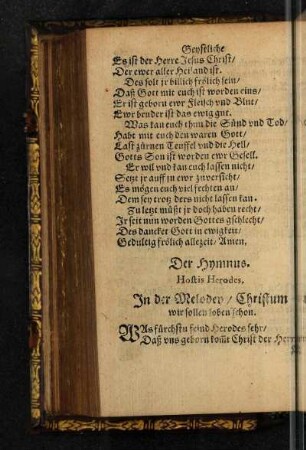 Geystliche
Es ist der Herre Jesus Christ/
Der ewer aller Heiland ist.
Des solt jr billich frölich sein/
Daß Gott mit euch ist worden eins/
Er ist geborn ewr Fleisch vnd Blut/
Ewr bruder ist das ewig gut.
Was kan euch thun die Sünd vnd Tod/
Habt mit euch den waren Gott/
Laßt zürnen Teuffel vnd die Hell/
Gotts Son ist worden ewr Gesell.
Er wil vnd kan euch lassen nicht/
Setzt jr auff in ewr zuuersicht/
Es mögen euch viel fechten an/
Dem sey trotz ders nicht lassen kan.
Zu letzt müßt jr doch haben recht/
Ir seit nun worden Gottes gschlecht/
Des dancket Gott in ewigkeit/
Gedultig frölich allezeit/ Amen.
Der Hymnus.
Hostis Herodes,
In der Melodey/ Christum
wir sollen loben schon.
WAs fürchstu feind Herodes sehr/
Daß vns geborn komt Christ der